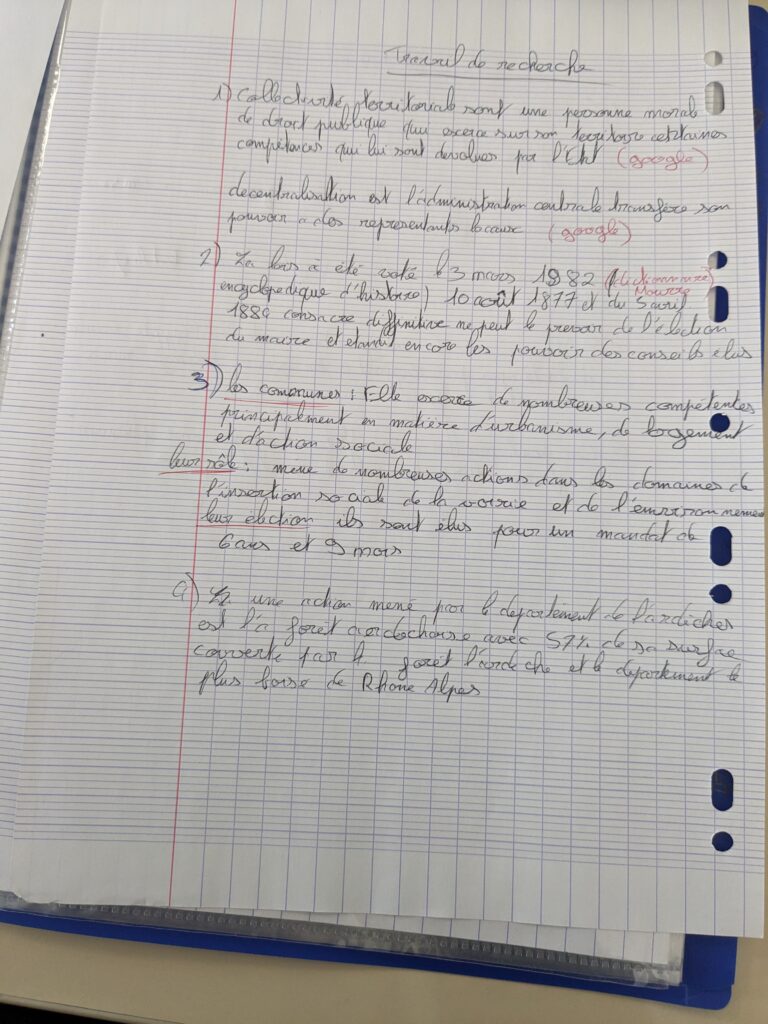 Travail de recherche
1) Collectivité territoriale sont une personne morale
de droit publique qui exerce sur son territoire certaines
compétences qui lui sont devolues par l'Etat (google)
decentralisation est l'administration centrale transfère son
pouvoir a des representants locaux (google)
2) La lois à été voté le 3 mars 1982 (dictionnaire
Mourre
encyclopedique d'histoire) 10 août 1877 et du 5 avril
1884 consacre diffinitive ne peut le pouvoir de l'élection
du maire et etandit encore les pouvoir des conseils elus
3) les communes : Elle excerce de nombreuses compétentes
principalment en matière d'urbanisme, de logement
et d'action sociale
leur rôle : mene de nombreuses actions dans les domaines de
l'insertion sociale de la voirie et de l'environnement
leur élection ils sont elus pour un mandat de
6 ans et 9 mois
4) une action mené par le departement de l'ardèches
est l'a forêt ardechoise avec 57% de sa surface
couverte par la forêt l'ardeche et le departement le
plus boisé de Rhône Alpes